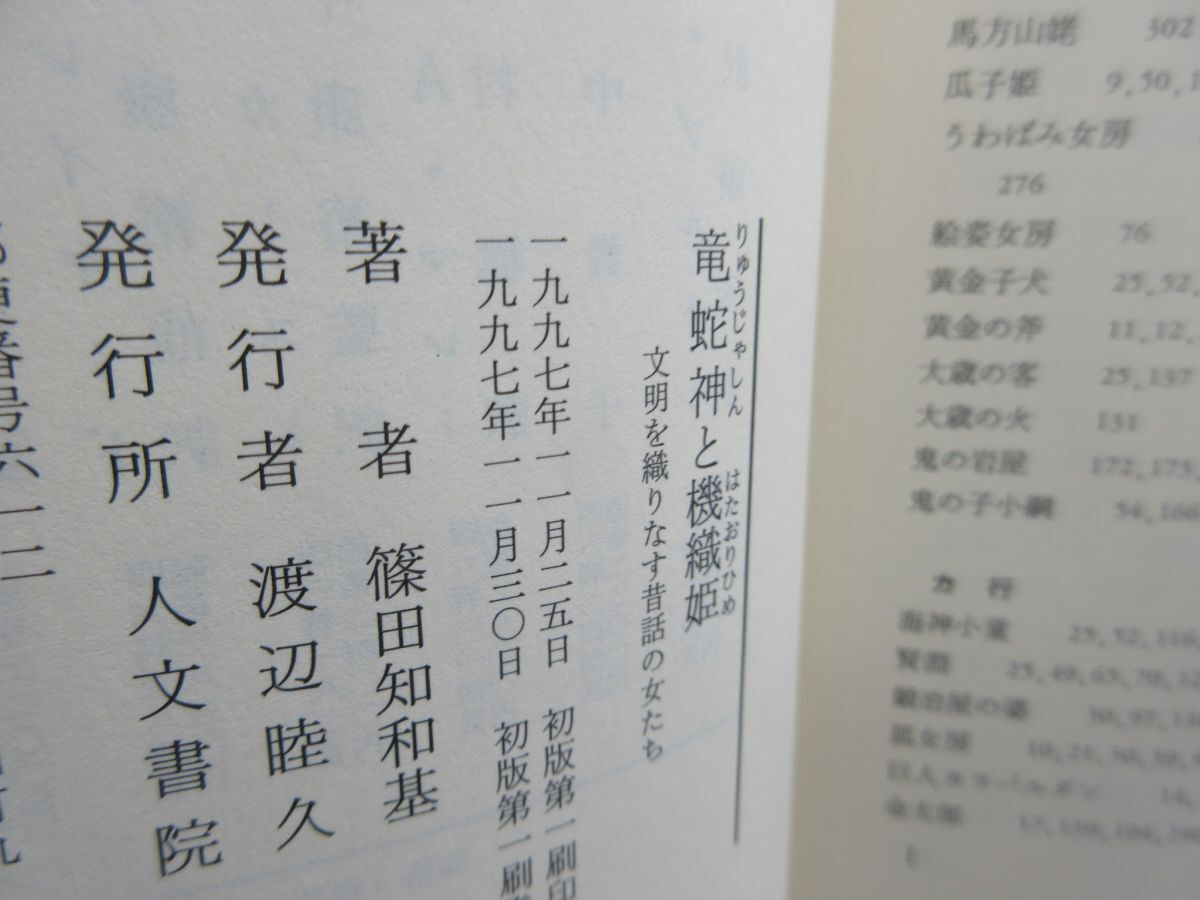 りゅうじゃしん　はたおりひめ
竜蛇神と機織姫
文明を織りなす昔話の女たち
一九九七年一一月二五日　初版第一刷印
一九九七年一一月三〇日　初版第一刷
著者　篠田知和基
発行者　渡辺睦久
発行所　人文書院
番号六一二
馬方山姥　302
瓜子姫　9, 50, 1
うわばみ女房
276
絵姿女房　76
黄金子犬　25, 52,
黄金の斧　11, 12,
大歳の客　25, 137
大歳の火　131
鬼の岩屋　172, 173,
鬼の子小綱　54, 166
カ行
海神小童　25, 52, 116,
賢淵　25, 49, 65, 70, 12
鍛治屋の婆　30, 97, 13
狐女房　10, 21, 30, 39,
巨人
金太郎　17,
1